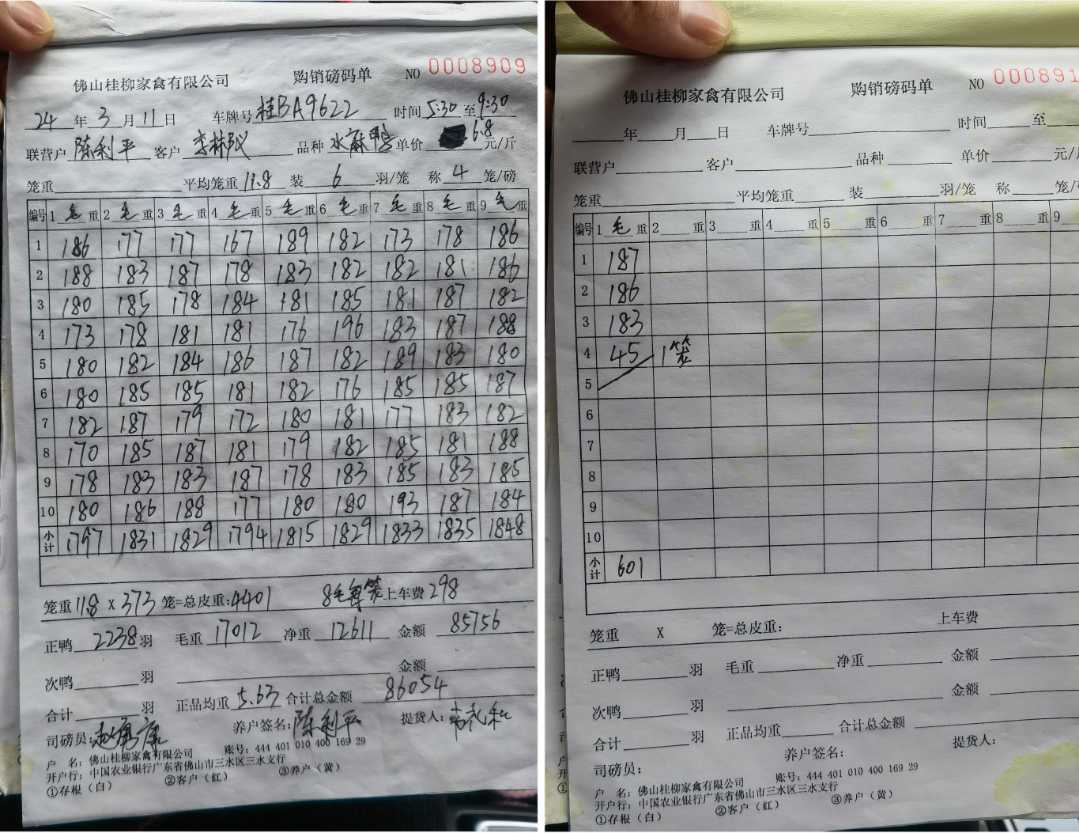 佛山桂柳家禽有限公司 购销磅码单 NO 0008909
24年3月11日 车牌号桂BA9622 时间5:30至9:30
联营户陈利平 客户 品种水麻鸭 单价6.8元/斤
笼重 平均笼重11.8 装6羽/笼 称4笼/磅
编号 1毛重 2毛重 3毛重 4毛重 5毛重 6毛重 7毛重 8毛重 9毛重
1 186 177 177 167 189 182 173 178 186
2 188 183 187 178 183 182 182 181 186
3 180 185 178 184 181 185 181 187 182
4 173 178 181 181 176 196 183 187 188
5 180 182 184 186 187 182 189 183 180
6 180 185 185 181 182 176 185 185 187
7 182 187 179 172 180 181 177 183 182
8 170 185 187 181 179 182 185 181 188
9 178 183 183 187 178 183 185 183 185
10 180 186 188 177 180 180 193 187 184
小计 1797 1831 1829 1794 1815 1829 1833 1835 1848
笼重118X373笼=总皮重:4401 8毛每笼上车费298
正鸭2238羽 毛重17012 净重12611 金额85756
次鸭 羽 金额
合计 羽 正品均重5.63 合计总金额86054
司磅员: 养户签名:陈利平 提货人:
户 名:佛山桂柳家禽有限公司 账号:444 401 010 400 169 29
开户行:中国农业银行广东省佛山市三水区三水支行
①存根(白) ②客户(红) ③养户(黄)
佛山桂柳家禽有限公司 购销磅码单 NO 000891
年 月 日 车牌号 时间 至
联营户 客户 品种 单价 元/
笼重 平均笼重 装 羽/笼 称 笼/
编号 1毛重 2 重 3 重 4 重 5 重 6 重 7 重 8 重 9
1 187
2 186
3 183
4 45 1笼
5
6
7
8
9
10
小计 601
笼重 X 笼=总皮重: 上车费
正鸭 羽 毛重 净重 金额
次鸭 羽 金额
合计 羽 正品均重 合计总金额
司磅员: 养户签名: 提货人:
户 名:佛山桂柳家禽有限公司 账号:444 401 010 400 169 29
开户行:中国农业银行广东省佛山市三水区三水支行
①存根(白) ②客户(红) ③养户(黄)